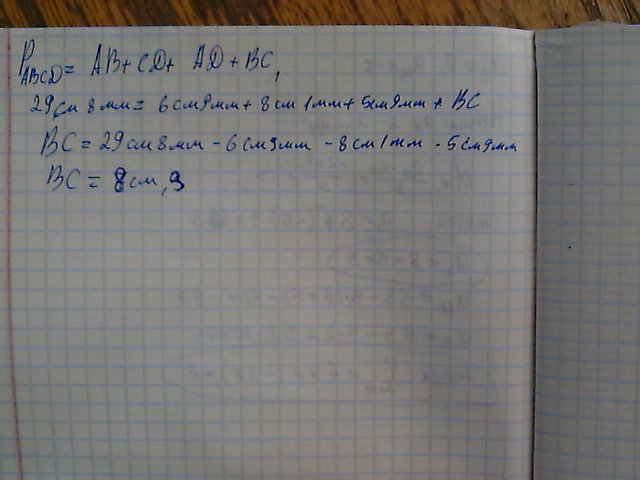 P ABCD = AB + CD + AD + BC,
29см 8мм = 6см9мм + 8см 1мм + 5см9мм + BC
BC = 29см8мм - 6см9мм - 8см1мм - 5см9мм
BC = 8см, 9